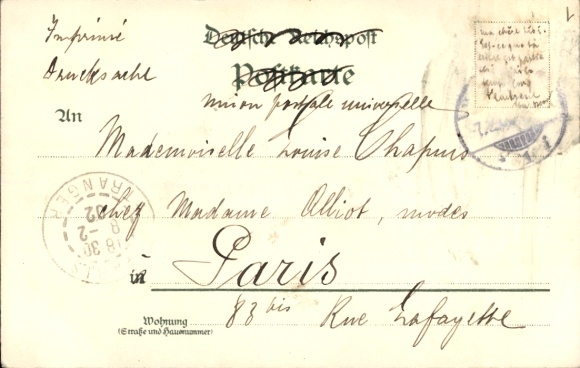 Imprimé
Drucksache
Deutsche Reichspost
Postkarte
union postale universelle
An
Mademoiselle Louise Chapuis
chez Madame Alliot, modes
in Paris
Wohnung
(Straße und Hausnummer)
83 bis Rue Lafayette
ETRANGER
18 30
8 -2
02